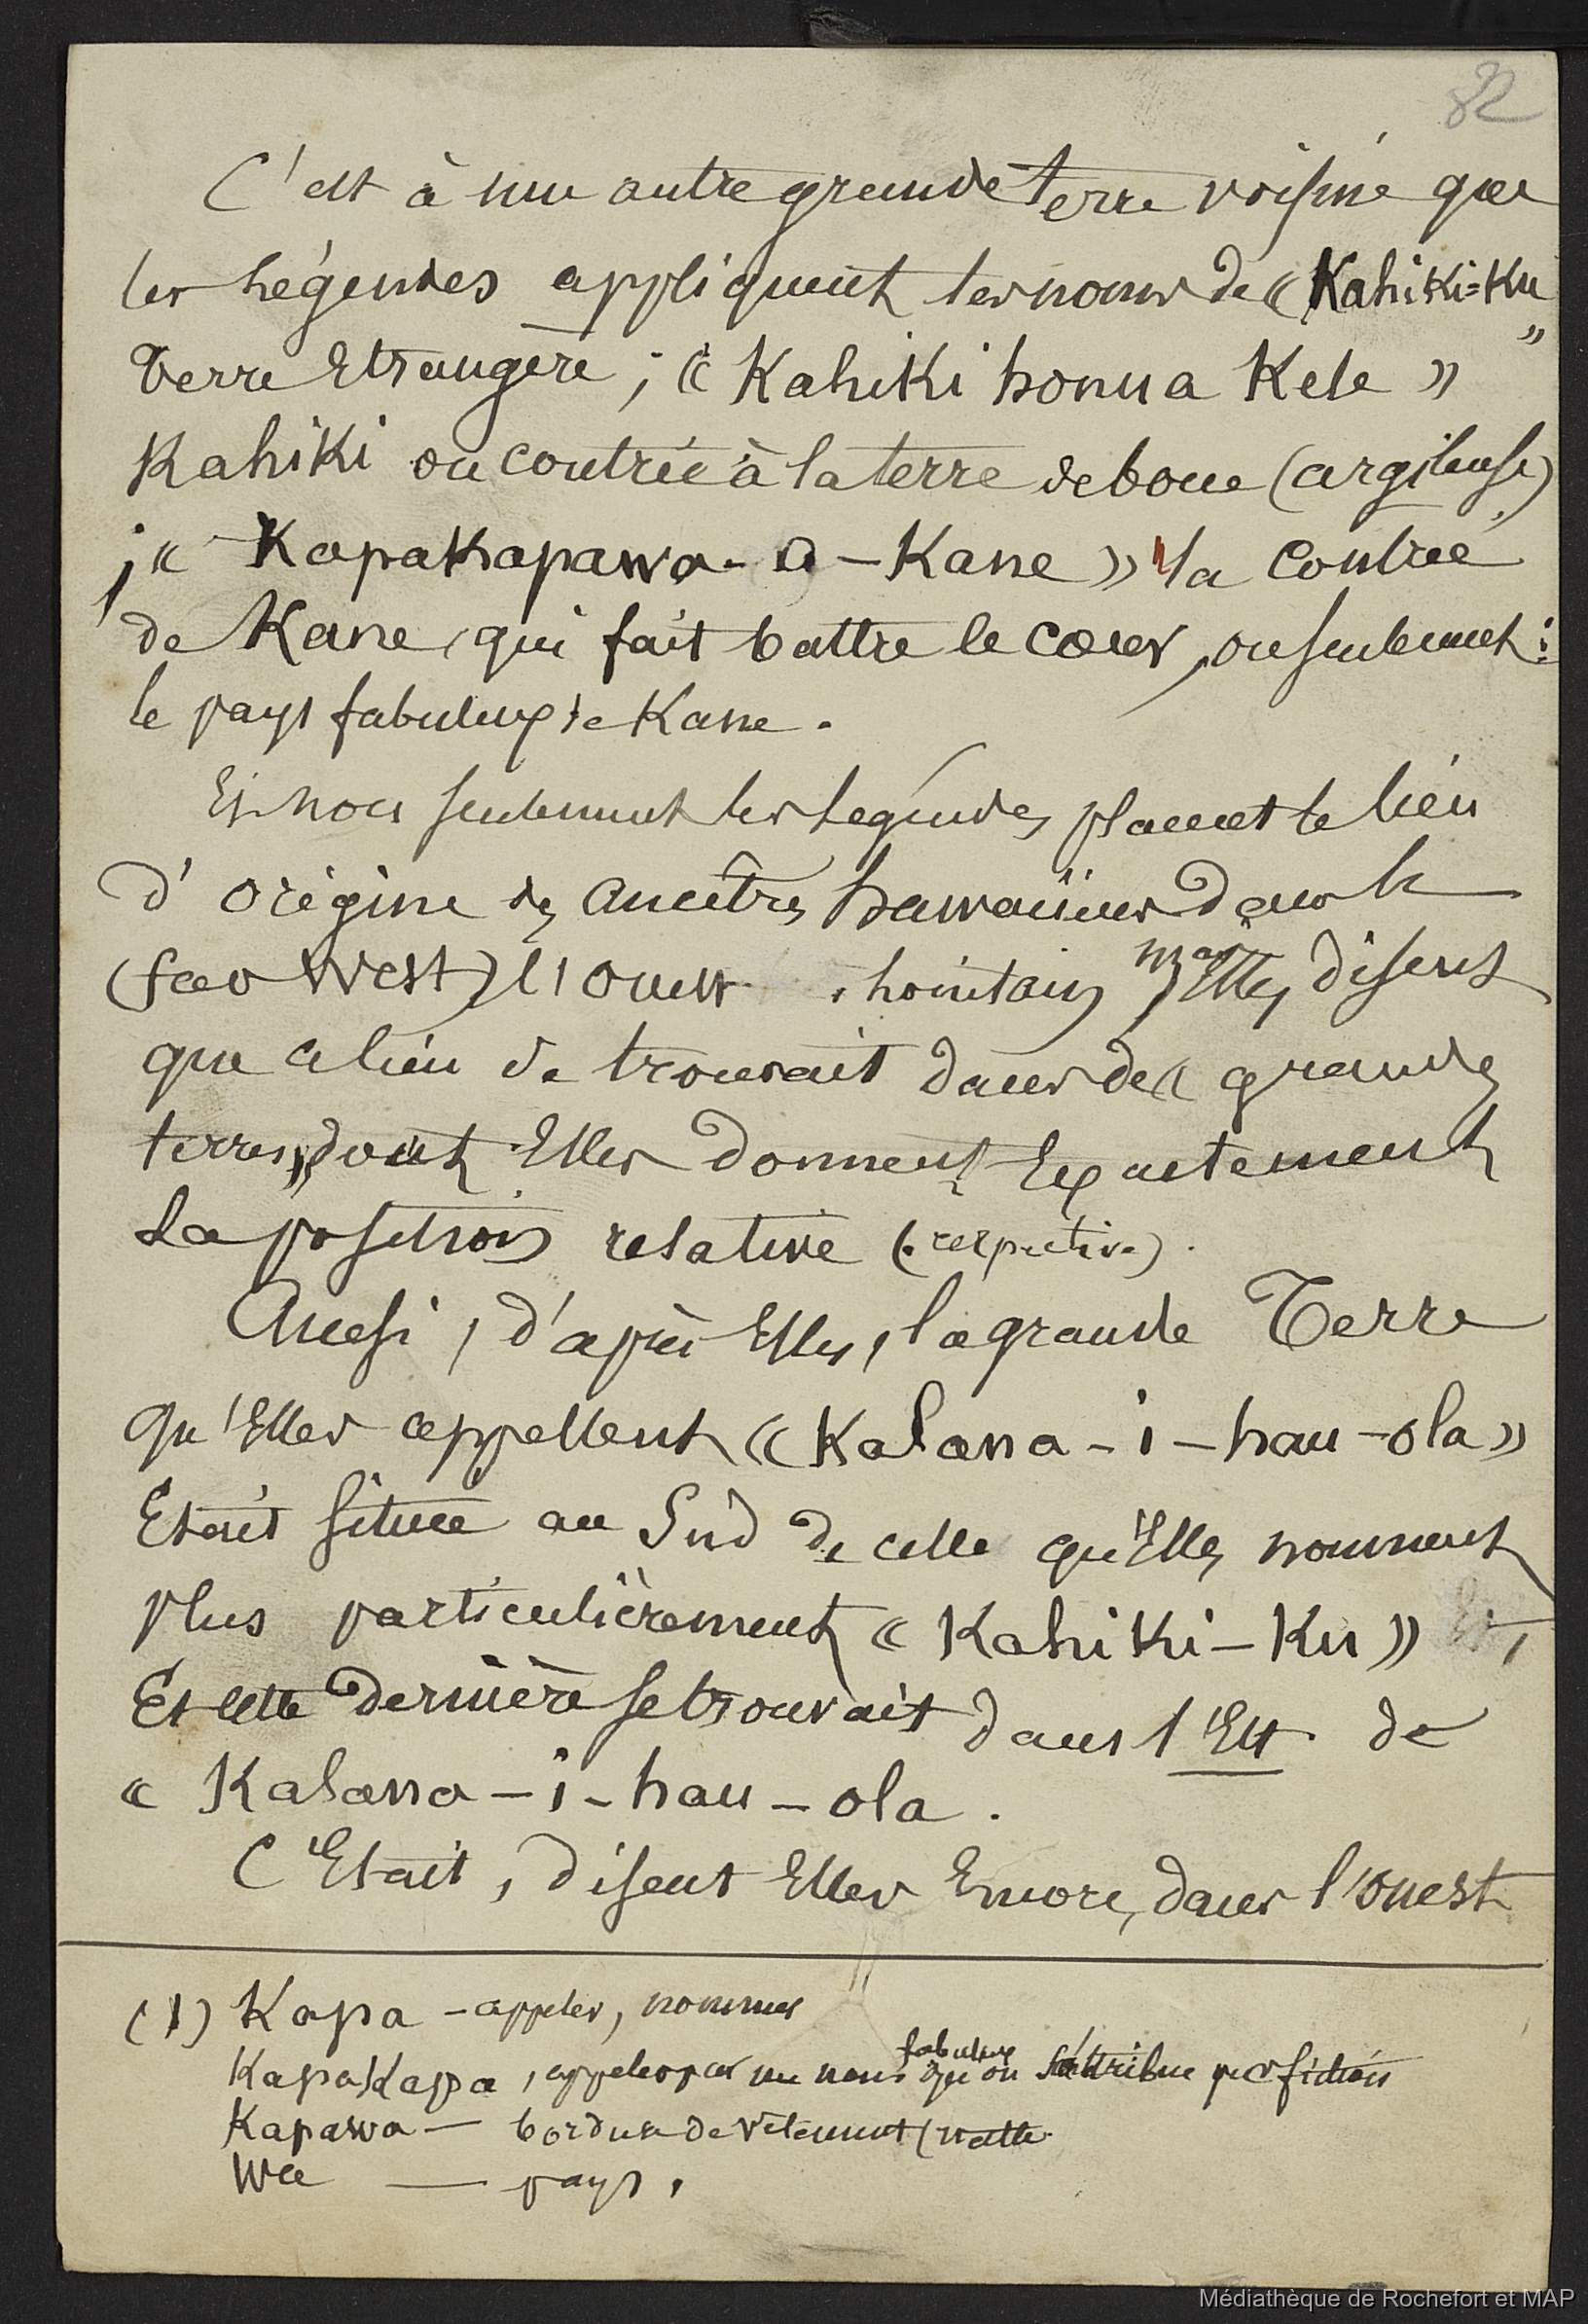 82
C'est à une autre grande terre voisine que
les légendes appliquent les noms de « Kahiki-Ku »
Terre Etrangère ; « Kahiki honua Kele »
Kahiki ou contrée à la terre de boue (argileuse)
; « Kapakapawa-a-Kane » la contrée
de Kane, qui fait battre le cœur, ou seulement :
le pays fabuleux de Kane.
Et non seulement les légendes placent le lieu
d'origine des ancêtres hawaiiens dans le
(far West) l'Ouest lointain, mais Elles disent
que ce lieu se trouvait dans de « grandes
terres » dont Elles donnent Exactement
la position relative (respective).
Ainsi, d'après Elles, la grande Terre
qu'Elles appellent « Kalana-i-hau-ola »
Etait située au Sud de celle qu'Elles nomment
plus particulièrement « Kahiki-Ku » Et,
Et cette dernière se trouvait dans l'Est de
« Kalana-i-hau-ola.
C'Etait, disent Elles Encore, dans l'ouest
(1) Kapa - appeler, nommer
KapaKapa, appeler par un nom fabuleux qu'on attribue par fiction
Kapawa - bordure de vêtement (natte
Wa — pays.
Médiathèque de Rochefort et MAP